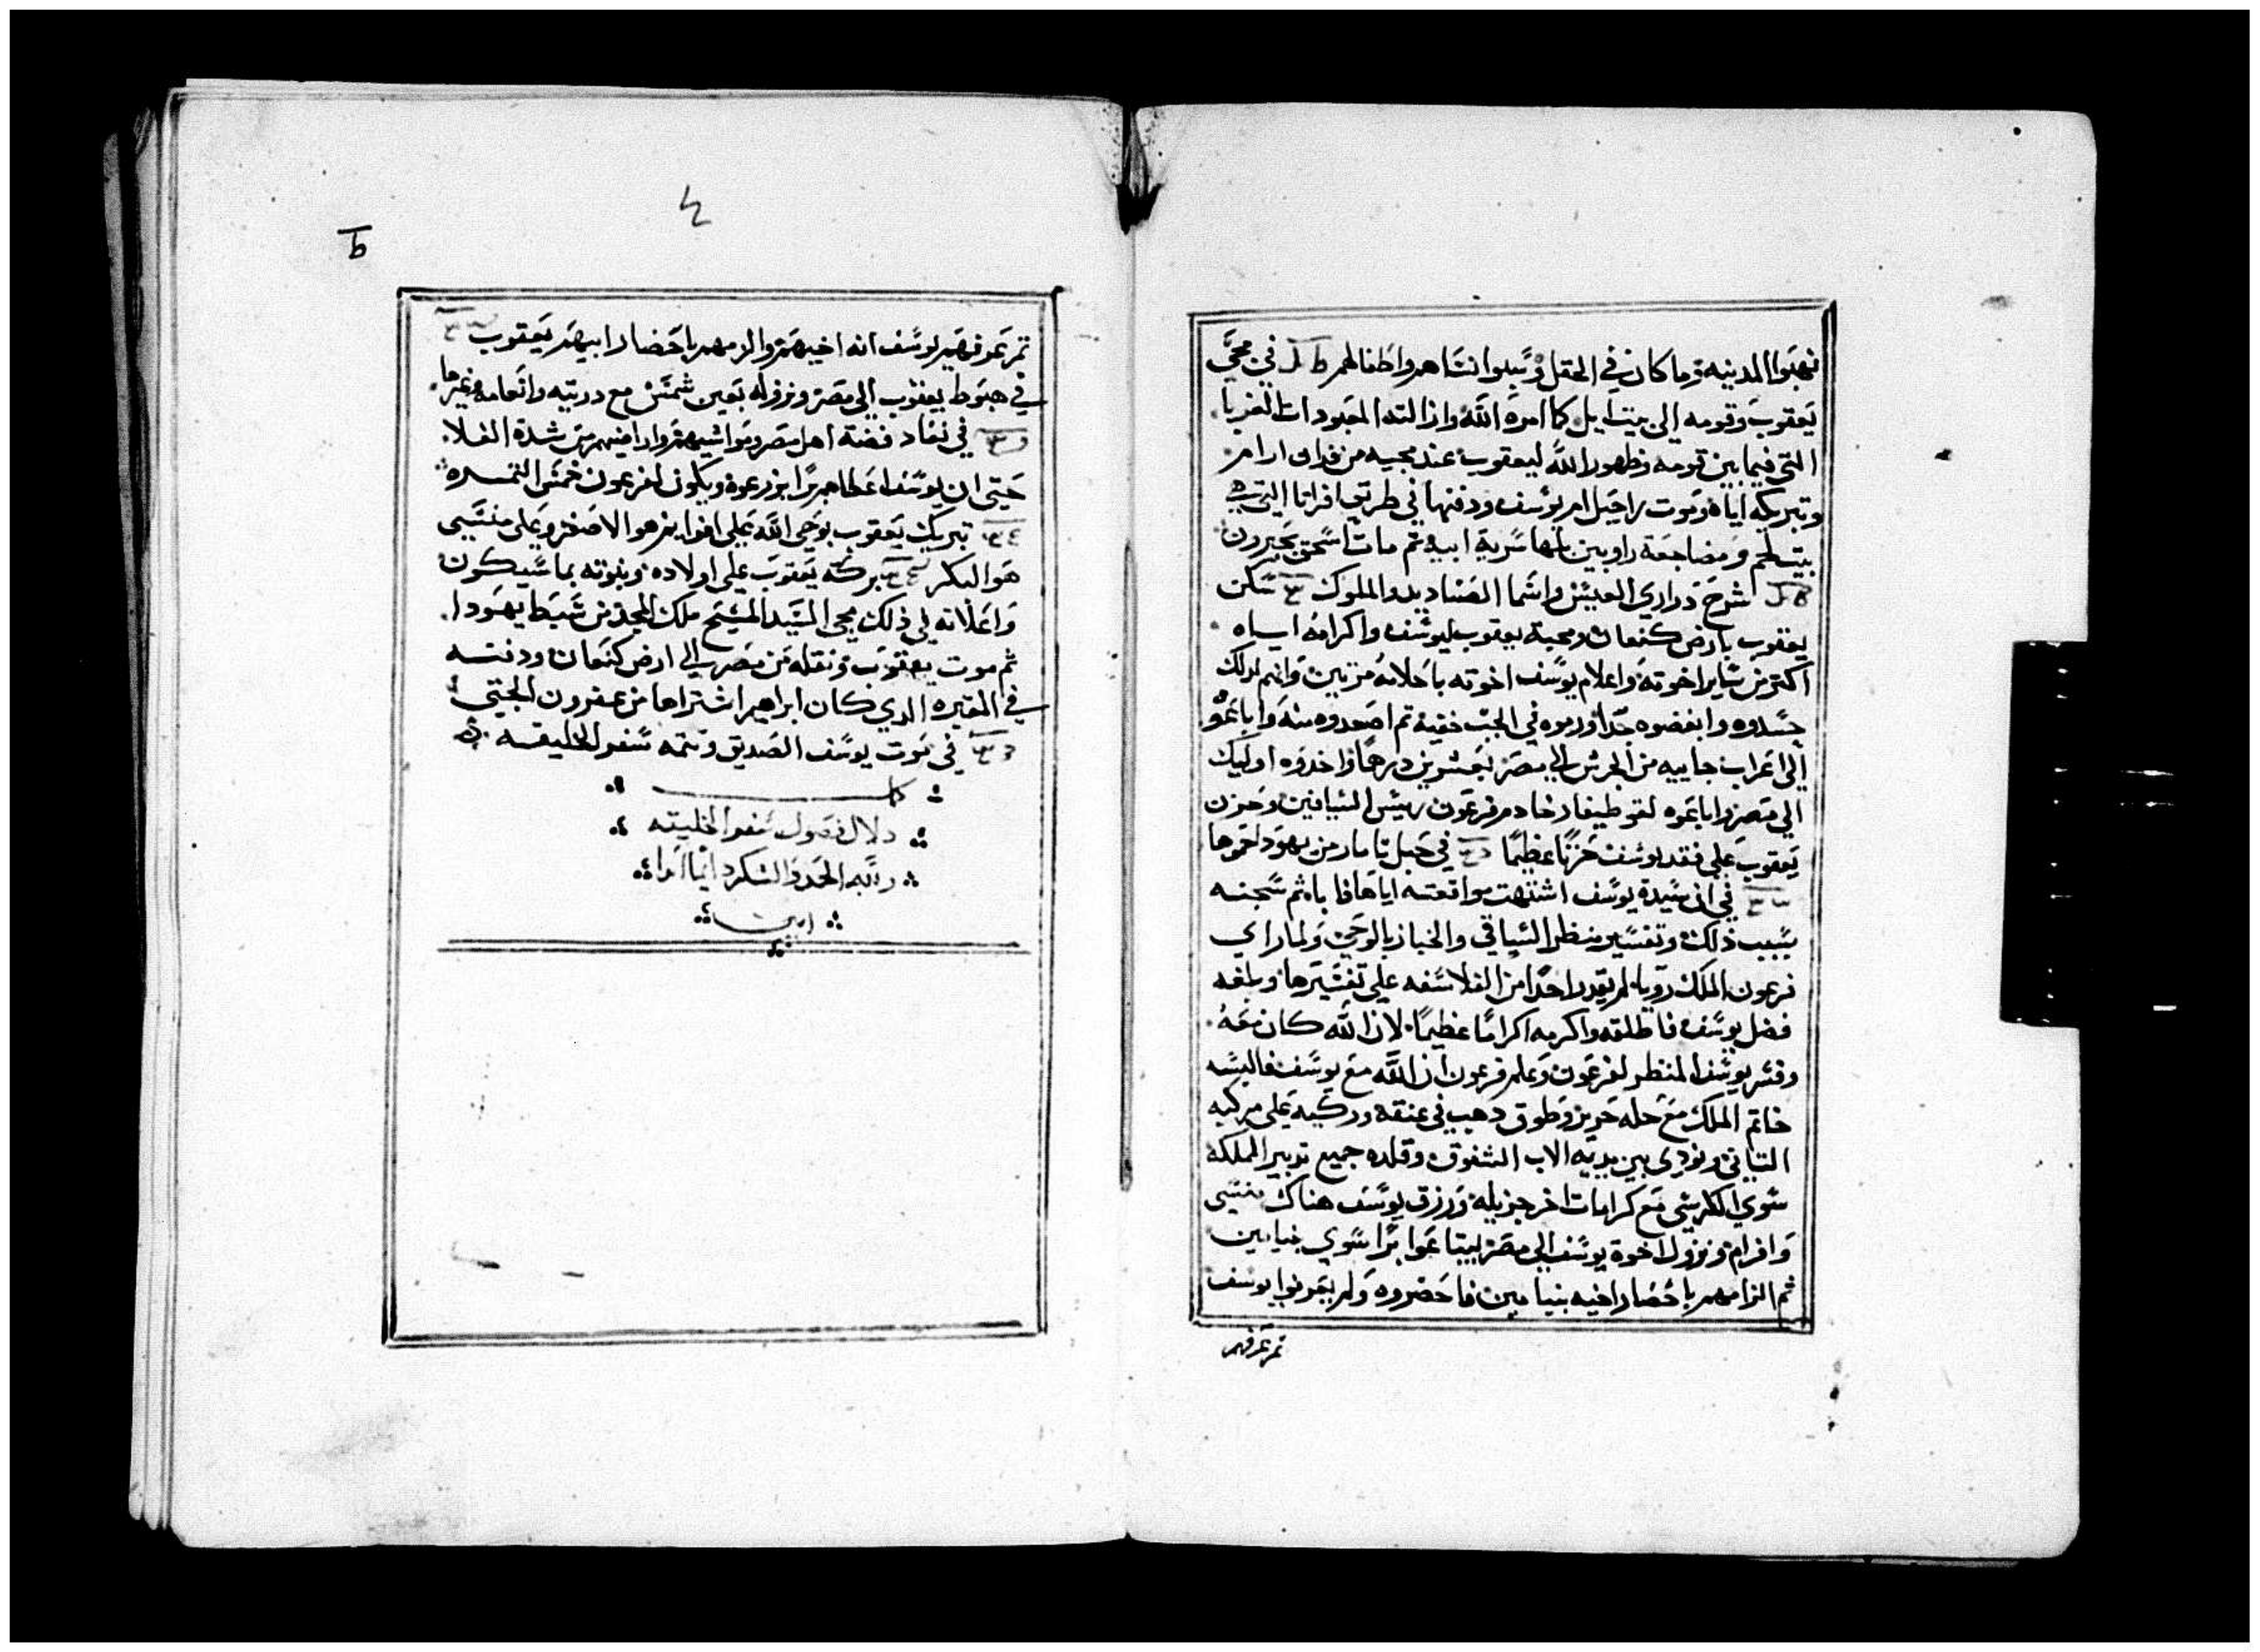 فنهبوا المدينه وما كان في الحقل وسبوا انتساهم واطفالهم في مجي
يعقوب وقومه الى بيت ايل كما امره الله وازالته المعبودات الغربا
التي فيما بين قومه وظهور الله ليعقوب عند مجيه من فدان ارام
وتبريكه اياه وموت راحيل ام يوسف ودفنها في طريق افراتا التي هي
بيت لحم ومضاجعة راوبين بلها سرية ابيه ثم مات اسحق بحبرون
شرح دراري العيس واسما الصناديد والملوك سكن
يعقوب بارض كنعان ومحبة يعقوب ليوسف واكرامه اياه
اكتر من ساير اخوته واعلام يوسف اخوته باحلامه مرتين وانهم لدلك
حسدوه وابغضوه جدا ورموه في الجب خفية تم اصعدوه منه واباعوه
الى اعراب جاييه من الجرش الي مصر بعشرين درهما واخدوه اوليك
الي مصر واباعوه لقوطيفار خادم فرعون رييس السيافين وحزن
يعقوب علي فقد يوسف حزنا عظيما في حبل تامار من يهودا حموها
في ان سيدة يوسف اشتهت مواقعته اياها فاباه ثم سجنه
بسبب ذلك وتفسير منظر الساقي والخباز بالوحي ولما راي
فرعون الملك رويا لم يقدر احدا من الفلاسفه علي تفسيرها وبلغه
فضل يوسف فاطلقه واكرمه اكراما عظيما لان الله كان معه
وفسر يوسف المنظر لفرعون وعلم فرعون ان الله مع يوسف فالبسه
خاتم الملك مع حله حرير وطوق دهب في عنقه وركبه علي مركبه
التاني ونودي بين يديه الاب الشفوق وقلده جميع تدبير المملكه
سوي الكرسي مع كرامات اخر جزيله ورزق يوسف هناك منسي
وافرام ونزول اخوة يوسف الي مصر ليبتاعوا برا سوي بنيامين
ثم الزامهم باحضار اخيه بنيامين فاحضروه ولم يعرفوا يوسف
تم عرفهم
تم عرفهم يوسف انه اخيهم والزمهم باحضار ابيهم يعقوب
في هبوط يعقوب الي مصر ونزوله بعين شمس مع دريته وانعامه وغيرها
في نفاد فضة اهل مصر ومواشيهم واراضيهم من شدة الغلا
حتي ان يوسف اعطاهم برا ليزرعوه ويكون لفرعون خمس التمره
تبريك يعقوب بوحي الله علي افرايم هو الاصغر وعلي منسي
هو البكر بركة يعقوب علي اولاده ونبوته بما سيكون
واعلانه في ذلك مجي السيد المسيح ملك المجد من سبط يهودا
ثم موت يعقوب ونقله من مصر الي ارض كنعان ودفنه
في المقبره الدي كان ابراهيم اشتراها من عفرون الحيتي
في موت يوسف الصديق وتتمه سفر الخليقه
كل
دلال فصول سفر الخليقه
ولله الحمد والشكر دايما ابدا
امين